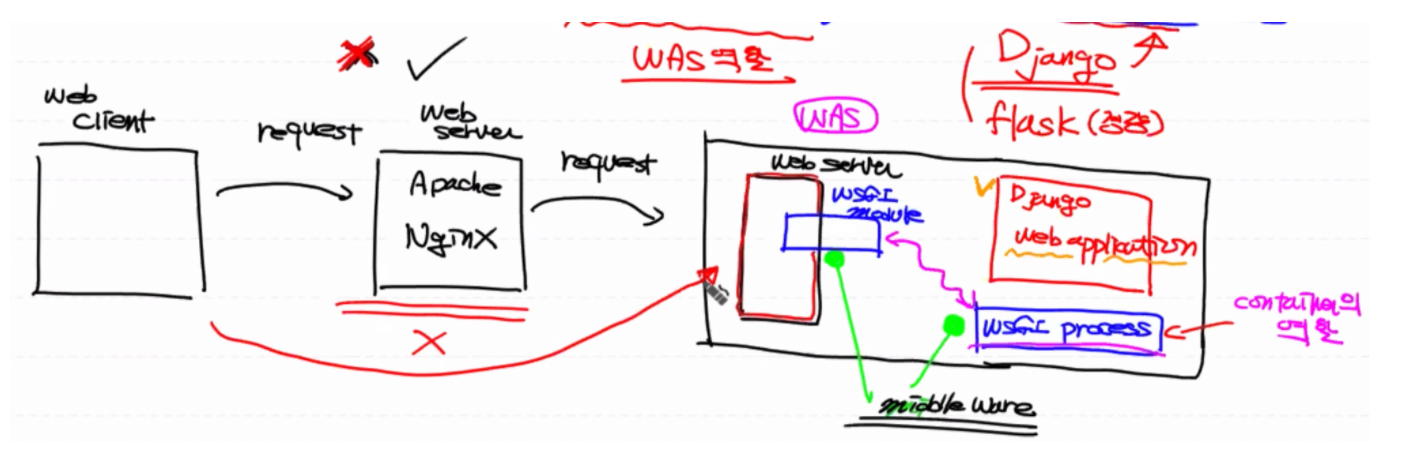 WAS 역할
Django
flask (경량)
web
client
request
web
server
Apache
NginX
request
WAS
web server
WSGI
module
Django
web application
WSGI process
container의
역할
middle ware